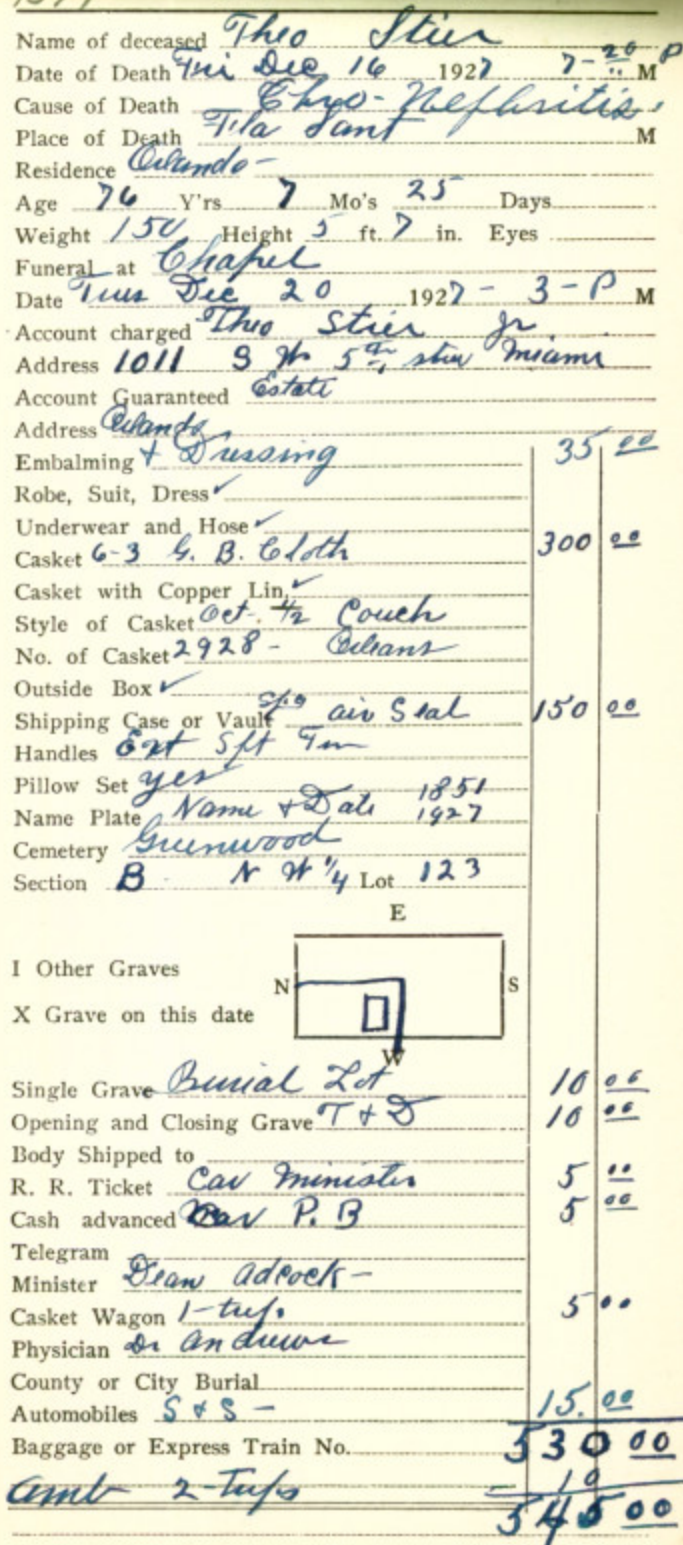 Name of deceased Theo Stier
Date of Death Fri Dec 16 1927 7-20 P M
Cause of Death Chro-Nephritis
Place of Death Fla Sant M
Residence Orlando -
Age 76 Y'rs 7 Mo's 25 Days
Weight 150 Height 5 ft. 7 in. Eyes
Funeral at Chapel
Date Tues Dec 20 1927 - 3 - P M
Account charged Theo Stier Jr
Address 1011 S W 5th Miami
Account Guaranteed Estate
Address Orlando
Embalming + Dressing 35 00
Robe, Suit, Dress ✓
Underwear and Hose ✓
Casket 6-3 G. B. Cloth 300 00
Casket with Copper Lin. ✓
Style of Casket Oct. 1/2 Couch
No. of Casket 2928 - Orleans
Outside Box ✓
Shipping Case or Vault air Seal 150 00
Handles Ext
Pillow Set yes
Name Plate Name + Date 1851 1927
Cemetery Greenwood
Section B N W 1/4 Lot 123
E
I Other Graves
N S
X Grave on this date
W
Single Grave Burial Lot 10 00
Opening and Closing Grave T + D 10 00
Body Shipped to
R. R. Ticket Car Minister 5 00
Cash advanced Car P. B 5 00
Telegram
Minister Dean Adcock -
Casket Wagon 1-trip. 5 00
Physician Dr Andrews
County or City Burial
Automobiles S & S - 15.00
Baggage or Express Train No. 530 00
Amb 2-Trips 10
545 00